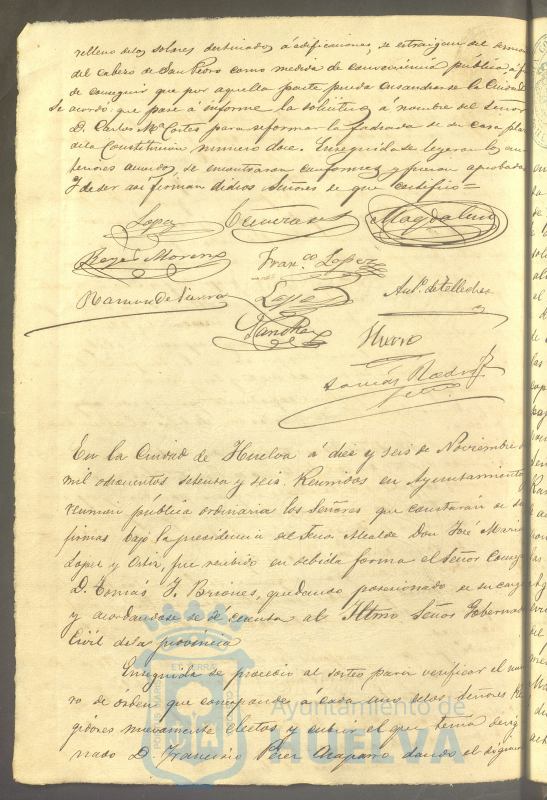 relleno de los solares destinados á edificaciones, se estraigan del
del Cabezo de San Pedro como medida de conveniencia pública á fin
de conseguir que por aquella parte pueda ensancharse la Ciudad
Se acordó que pase á informe la solicitud á nombre del Señor
D. Carlos Mª Cortes para reformar la fachada de su casa plaza
de la Constitución numero doce. Enseguida se leyeron los an-
teriores acuerdos, se encontraron conformes y fueron aprobados
Y de ser asi firman dichos Señores de que certifico=
Lopez
Reyes Moreno
Franco Lopez
Ramon de
Lopez
Sanchez
Antº de Tellechea
Tomás Rodrig
En la Ciudad de Huelva á diez y seis de Noviembre de
mil ochocientos setenta y seis. Reunidos en Ayuntamiento
reunion pública ordinaria los Señores que constarán de sus
firmas bajo la presidencia del Señor Alcalde Don José Maria
Lopez y fue recibido en debida forma el Señor
D. Tomás J. Briones, quedando posesionado de su cargo
y acordandose se dé cuenta al Iltmo Señor Gobernador
Civil de la provincia
Enseguida se procedió al sorteo para verificar el nume-
ro de órden que corresponde á cada uno de los Señores Re-
gidores nuevamente electos y cubrir el que tenia desig-
nado D. Francisco Perez Chaparro dando el siguien
Ayuntamiento de
HUELVA